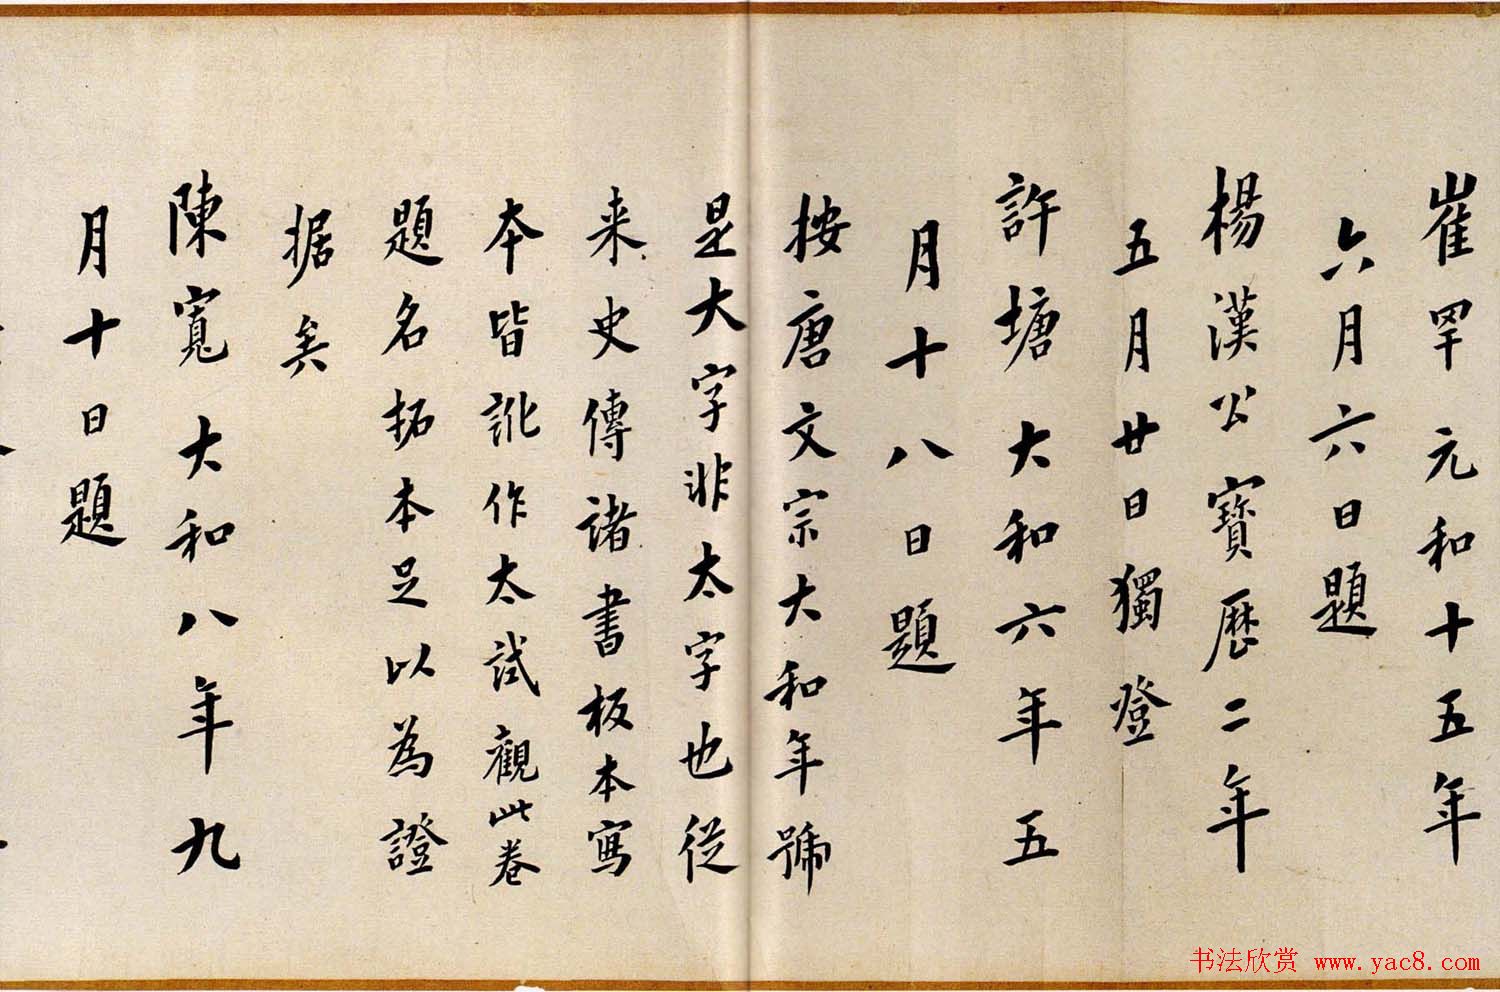 崔罕元和十五年
六月六日題
楊漢公寶歷二年
五月廿日獨登
許塘大和六年五
月十八日題
按唐文宗大和年號
是大字非太字也從
来史傳諸書板本寫
本皆訛作太試觀此卷
題名拓本足以為證
据矣
陳寬大和八年九
月十日題
书法欣赏 www.yac8.com